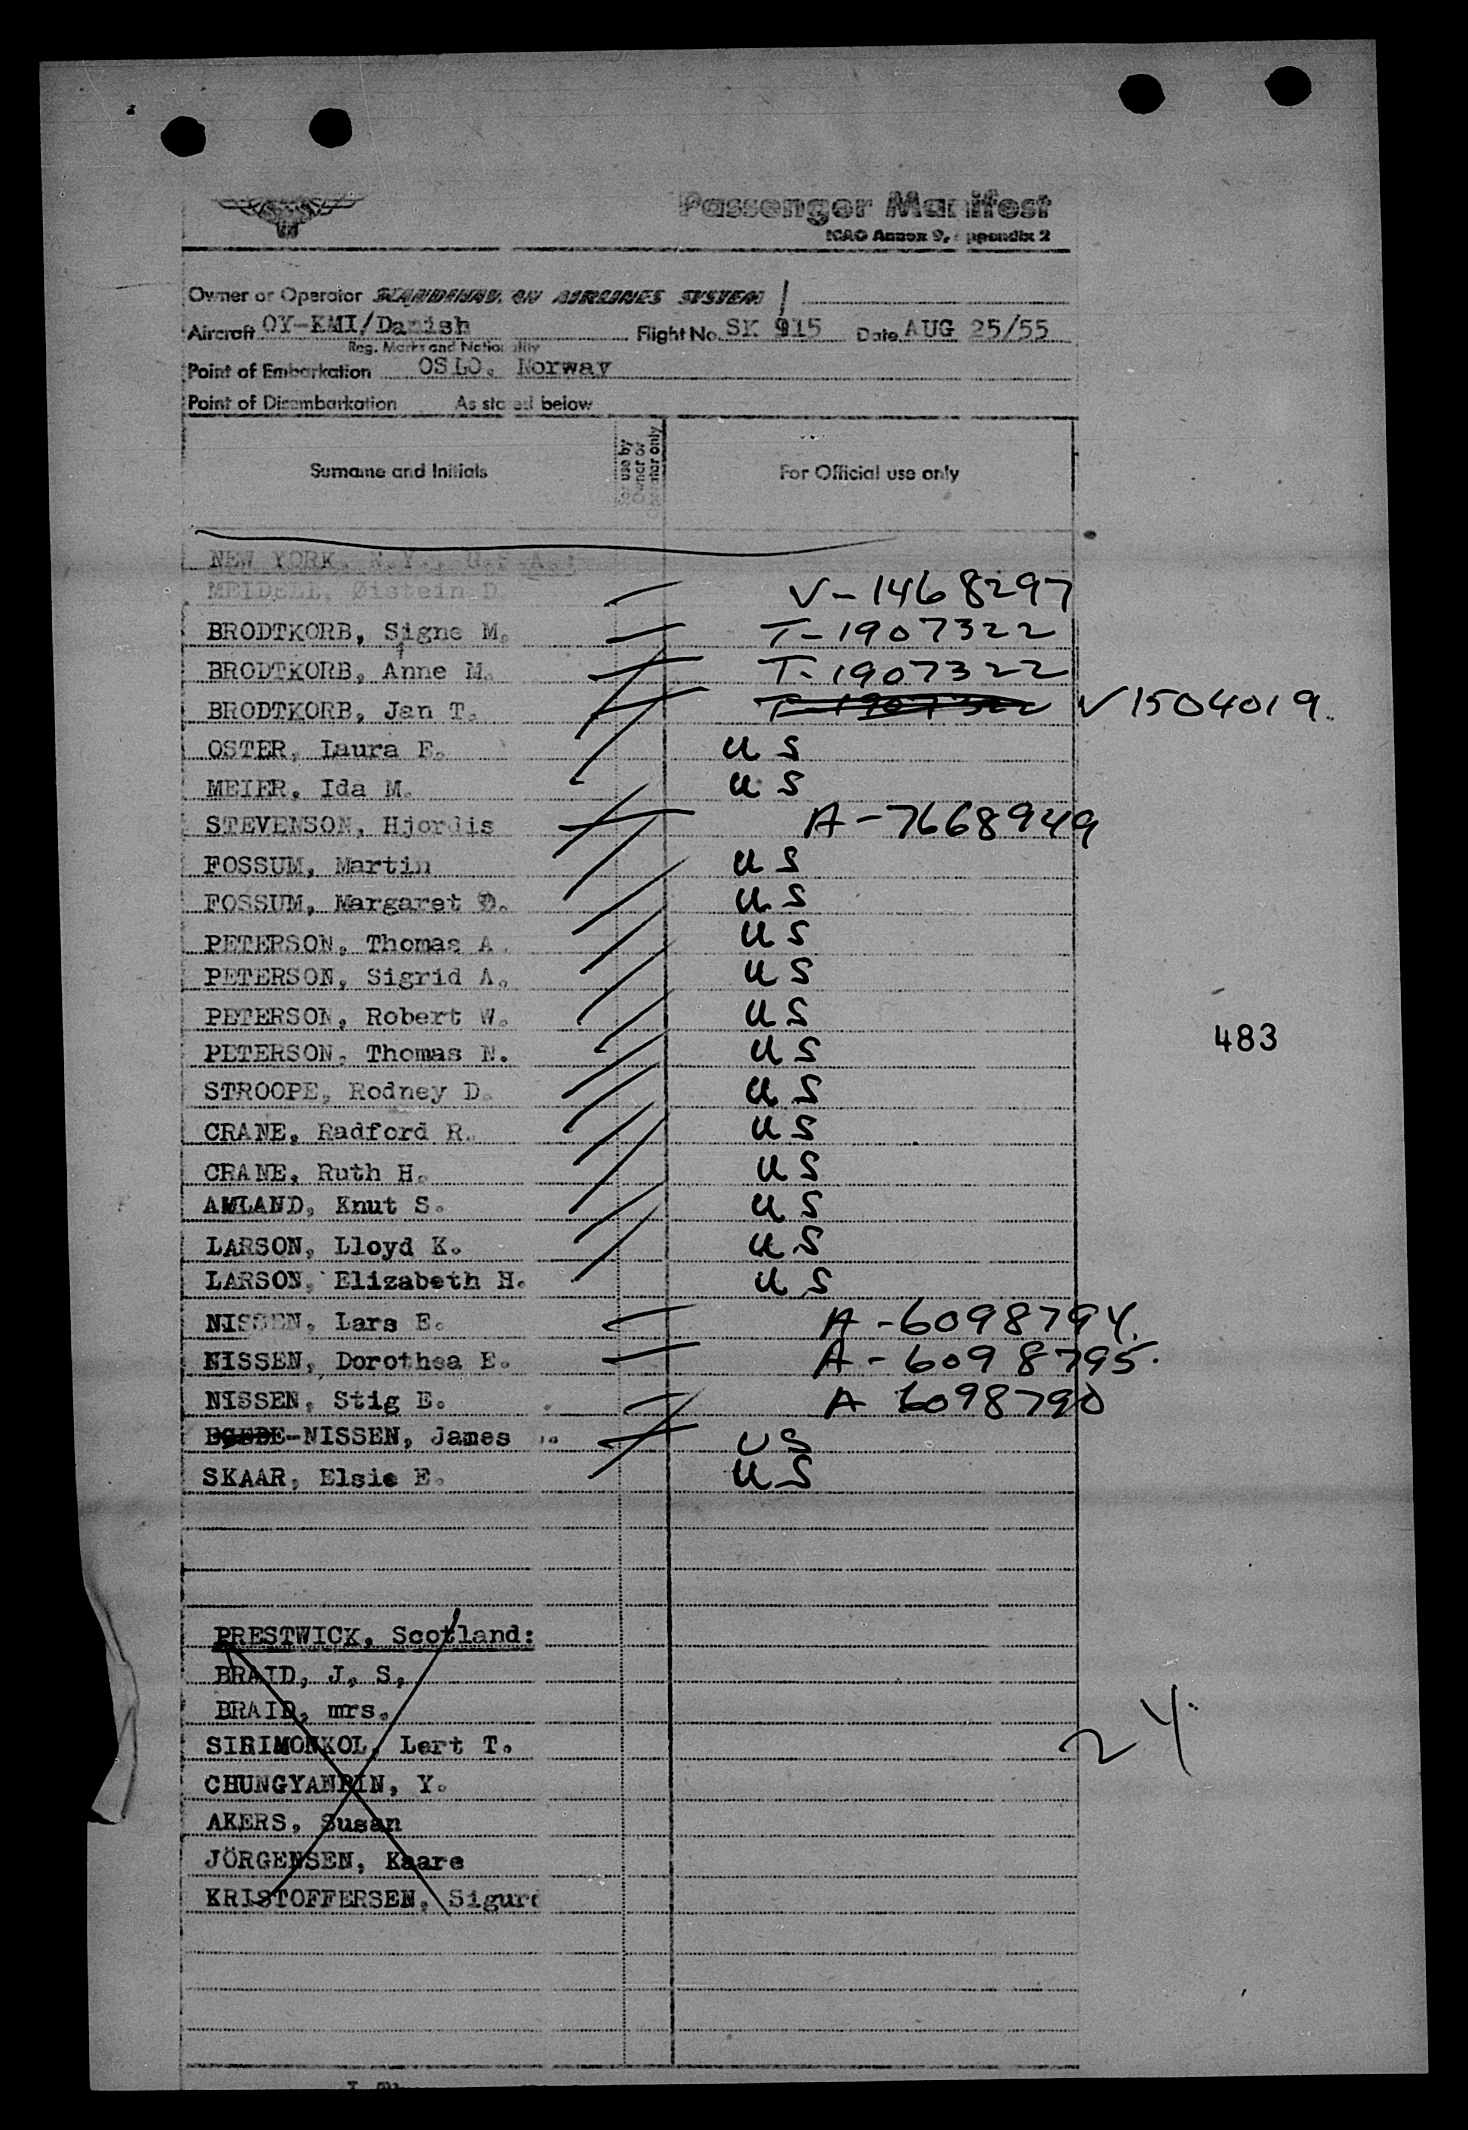 Passenger Manifest
ICAO Annex 9, Appendix 2
Owner or Operator SCANDINAVIAN AIRLINES SYSTEM
Aircraft OY-KMI/Danish Flight No. SK 915 Date AUG 25/55
Reg. Marks and Nationality
Point of Embarkation OSLO. Norway
Point of Disembarkation As stated below
Surname and Initials For use by Owner or Operator only For Official use only
NEW YORK, N.Y., U.S.A.:
MEIDELL, Øistein D. V-1468297
BRODTKORB, Signe M. T-1907322
BRODTKORB, Anne M. T-1907322
BRODTKORB, Jan T. T-1907322 V1504019.
OSTER, Laura E. US
MEIER, Ida M. US
STEVENSON, Hjordis A-7668949
FOSSUM, Martin US
FOSSUM, Margaret O. US
PETERSON, Thomas A. US
PETERSON, Sigrid A. US
PETERSON, Robert W. US
PETERSON, Thomas N. US
483
STROOPE, Rodney D. US
CRANE, Radford R. US
CRANE, Ruth H. US
AMLAND, Knut S. US
LARSON, Lloyd K. US
LARSON, Elizabeth H. US
NISSEN, Lars E. A-6098794.
NISSEN, Dorothea E. A-6098795.
NISSEN, Stig E. A 6098790
EGEDE-NISSEN, James US
SKAAR, Elsie E. US
PRESTWICK, Scotland:
BRAID, J. S,
BRAID, mrs.
SIRIMONKOL, Lert T. 24.
CHUNGYANPIN, Y.
AKERS, Susan
JÖRGENSEN, Kaare
KRISTOFFERSEN, Sigurd